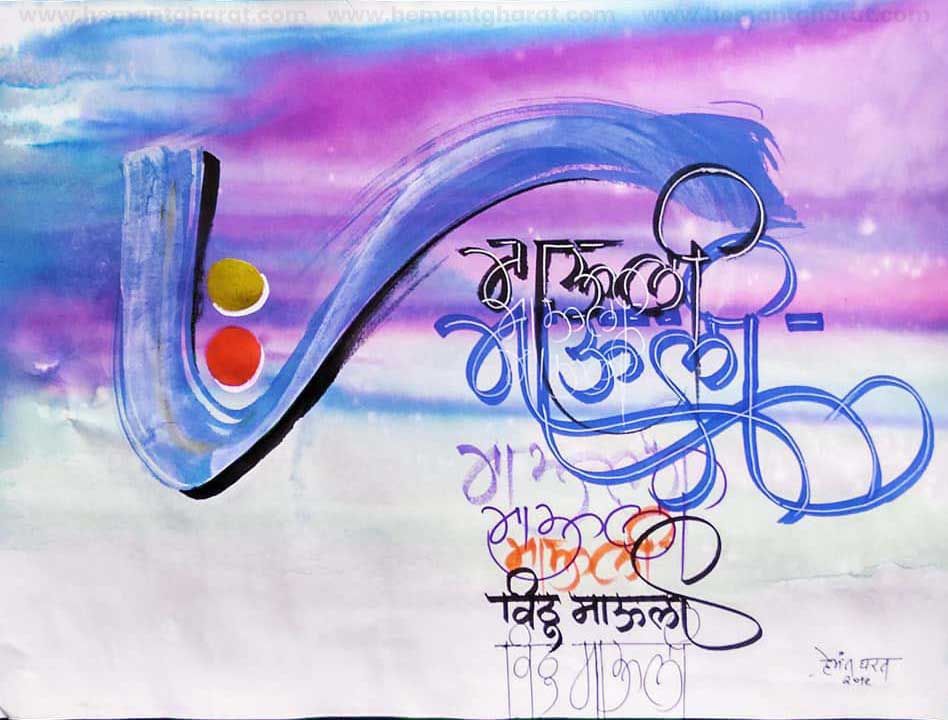 www.hemantgharat.com www.hemantgharat.com www.hemantgharat.com
माऊली
माऊली
माऊली
माऊली
माऊली
माऊली
विठू माऊली
विठू माऊली
हेमंत घरत